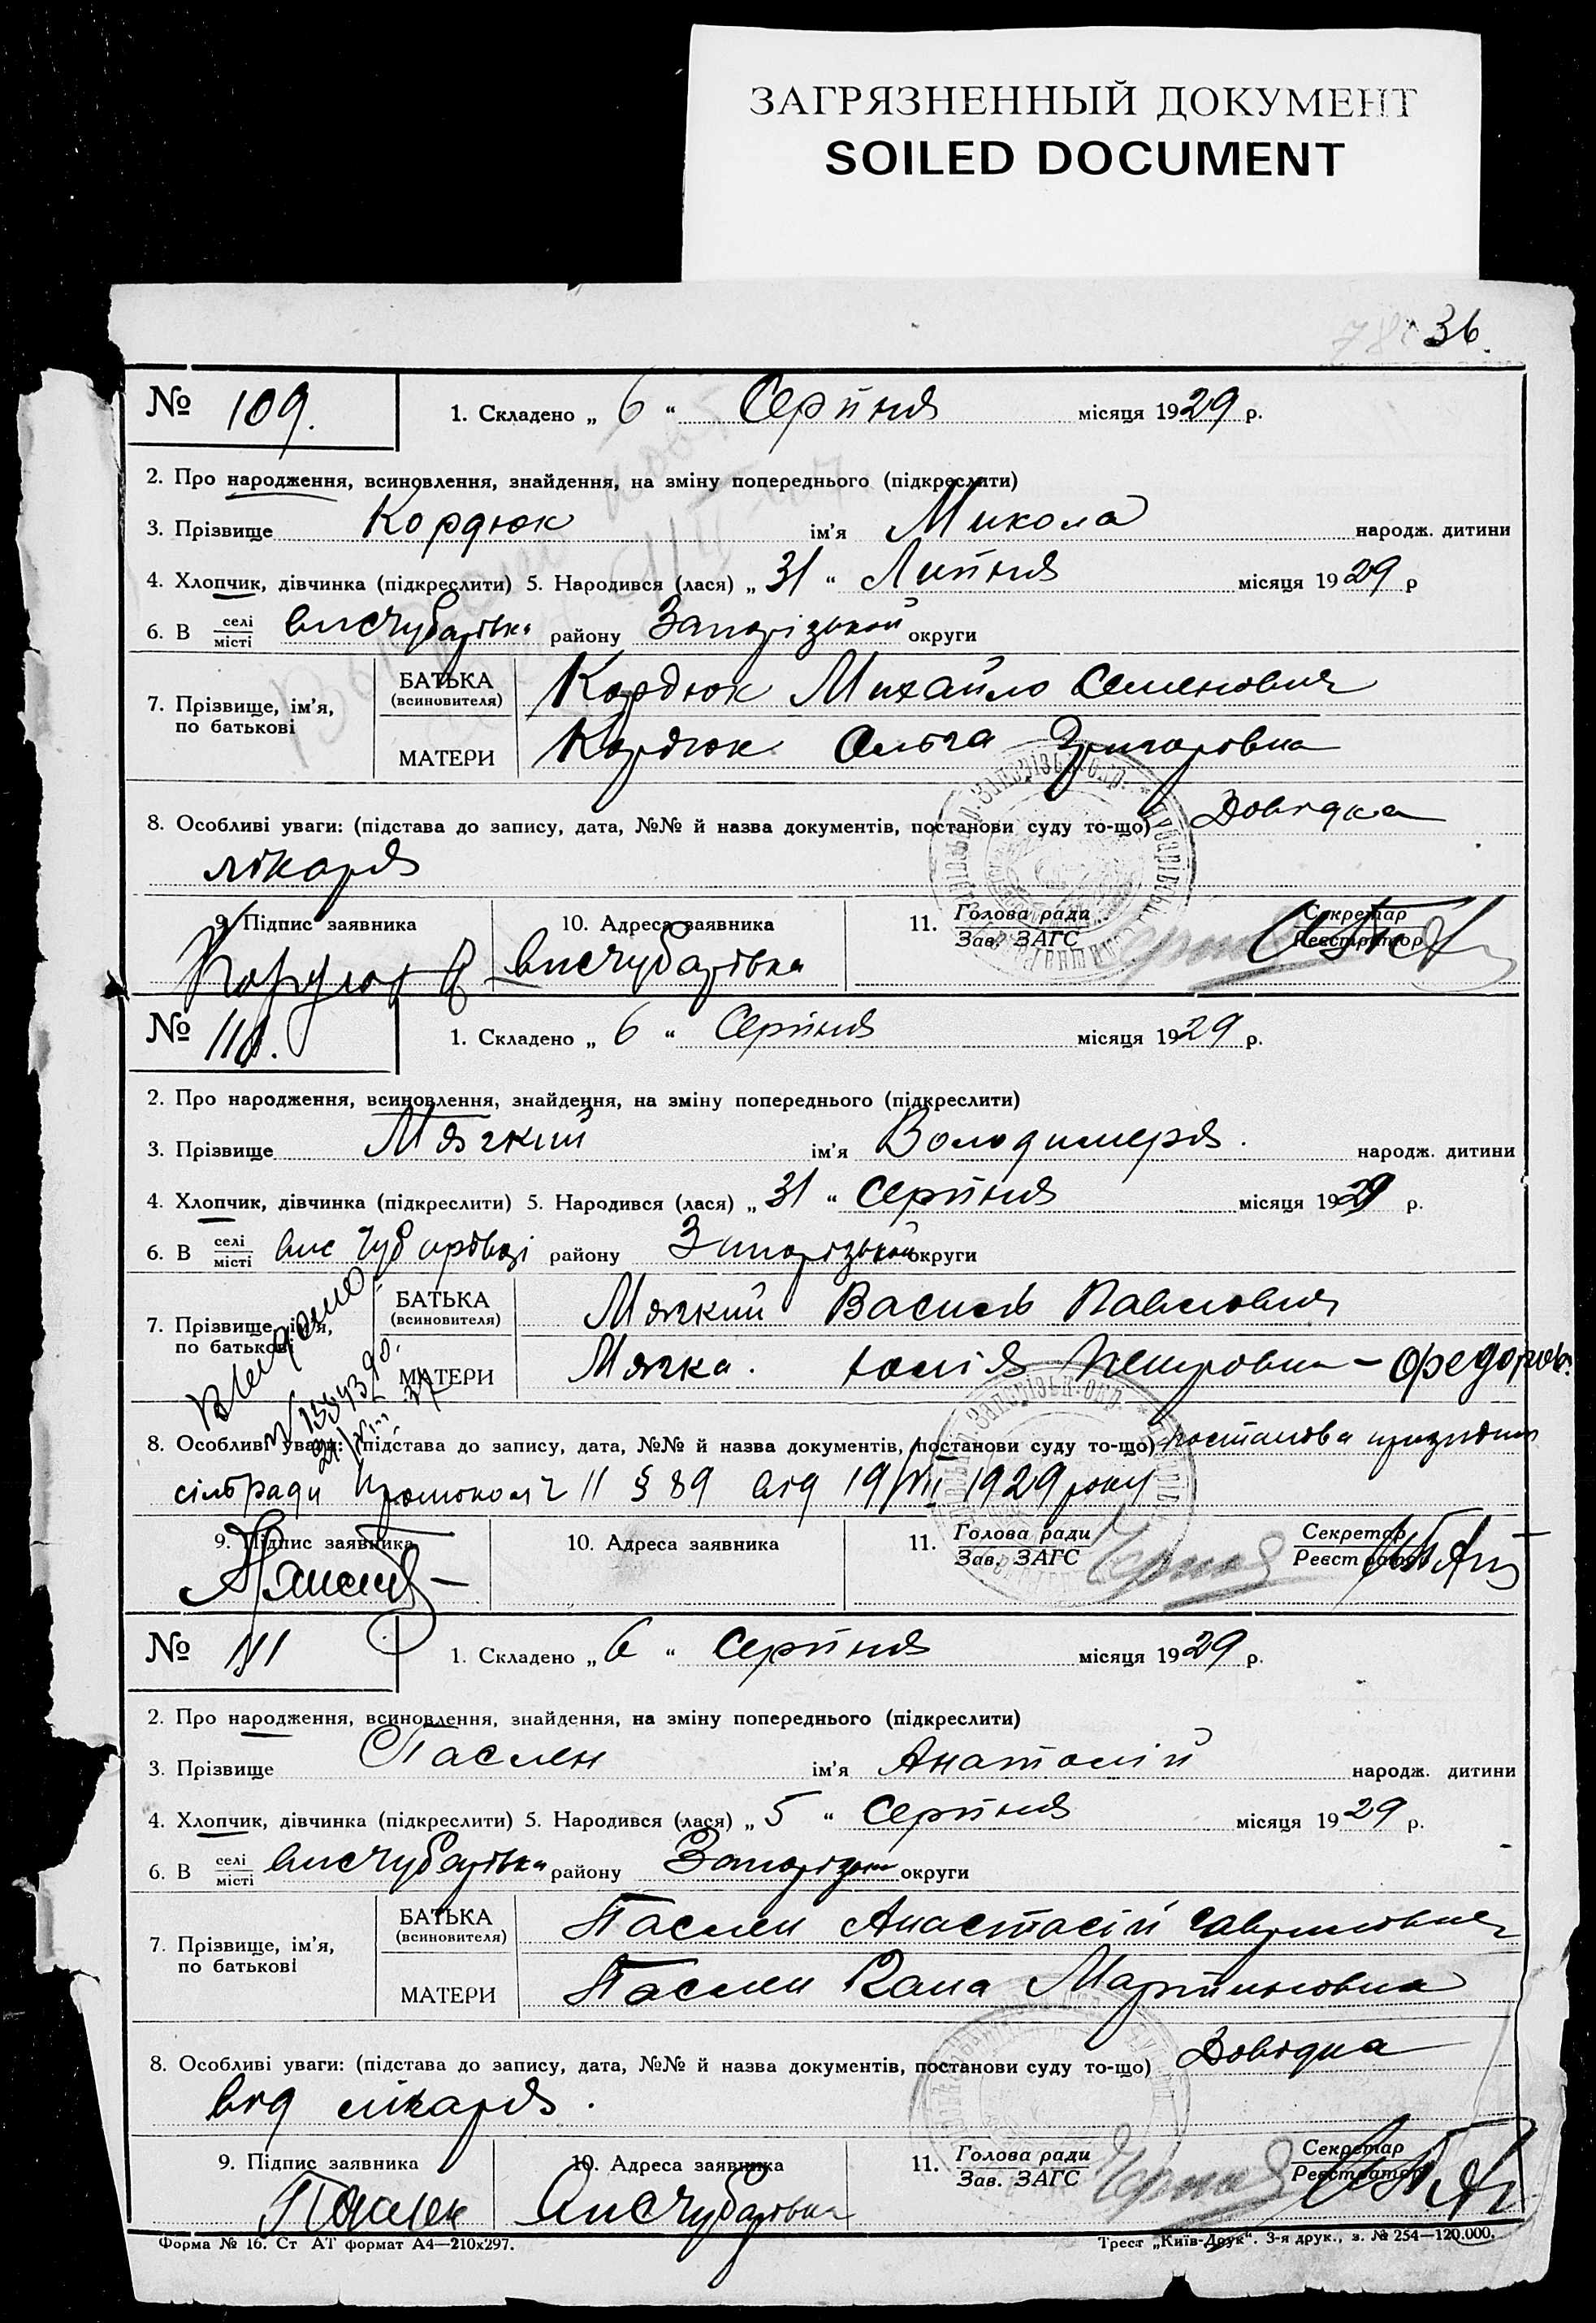 ЗАГРЯЗНЕННЫЙ ДОКУМЕНТ
SOILED DOCUMENT
36.
№ 109. 1. Складено „ 6 “ Серпня місяця 1929 р.
2. Про народження, всиновлення, знайдення, на зміну попереднього (підкреслити)
3. Прізвище Кордюк ім'я Микола народж. дитини
4. Хлопчик, дівчинка (підкреслити) 5. Народився (лася) „ 31 “ Липня місяця 1929 р
6. В селі місті висЧубарівка району Запорізькой округи
7. Прізвище, ім'я, по батькові
БАТЬКА (всиновителя) Кордюк Михайло Семенович
МАТЕРИ Кордюк Ольга Григоровна
8. Особливі уваги: (підстава до запису, дата, №№ й назва документів, постанови суду то-що) Довідка
лікаря
9. Підпис заявника 10. Адреса заявника 11. Голова ради Зав. ЗАГС Секретар Реєстратор
Кордюк висЧубарівка
№ 110. 1. Складено „ 6 “ Серпня місяця 1929 р.
2. Про народження, всиновлення, знайдення, на зміну попереднього (підкреслити)
3. Прізвище Мягкий ім'я Володимеря. народж. дитини
4. Хлопчик, дівчинка (підкреслити) 5. Народився (лася) „ 31 “ серпня місяця 1929 р.
6. В селі місті вис Чубарівці району Запорізькой округи
7. Прізвище, ім'я, по батькові
БАТЬКА (всиновителя) Мягкий Василь Павлович
МАТЕРИ Мягка. Юлія Петровна - Федоров.
8. Особливі уваги: (підстава до запису, дата, №№ й назва документів, постанови суду то-що) постанова президии
сільради Протокол ч 11 § 89 від 19/VII 1929 року
9. Підпис заявника 10. Адреса заявника 11. Голова ради Зав. ЗАГС Секретар Реєстратор
№ 111 1. Складено „ 6 “ серпня місяця 1929 р.
2. Про народження, всиновлення, знайдення, на зміну попереднього (підкреслити)
3. Прізвище Паслен ім'я Анатолій народж. дитини
4. Хлопчик, дівчинка (підкреслити) 5. Народився (лася) „ 5 “ серпня місяця 1929 р.
6. В селі місті висЧубарівка району Запорізьк округи
7. Прізвище, ім'я, по батькові
БАТЬКА (всиновителя) Паслен Анастасій Гаврилович
МАТЕРИ Паслен Мартиновна
8. Особливі уваги: (підстава до запису, дата, №№ й назва документів, постанови суду то-що) Довідка
від лікаря.
9. Підпис заявника 10. Адреса заявника 11. Голова ради Зав. ЗАГС Секретар Реєстратор
Паслен висЧубарівка
Форма № 16. Ст АТ формат А4—210х297. Трест „Київ-Друк“. 3-я друк., з. № 254—120.000.